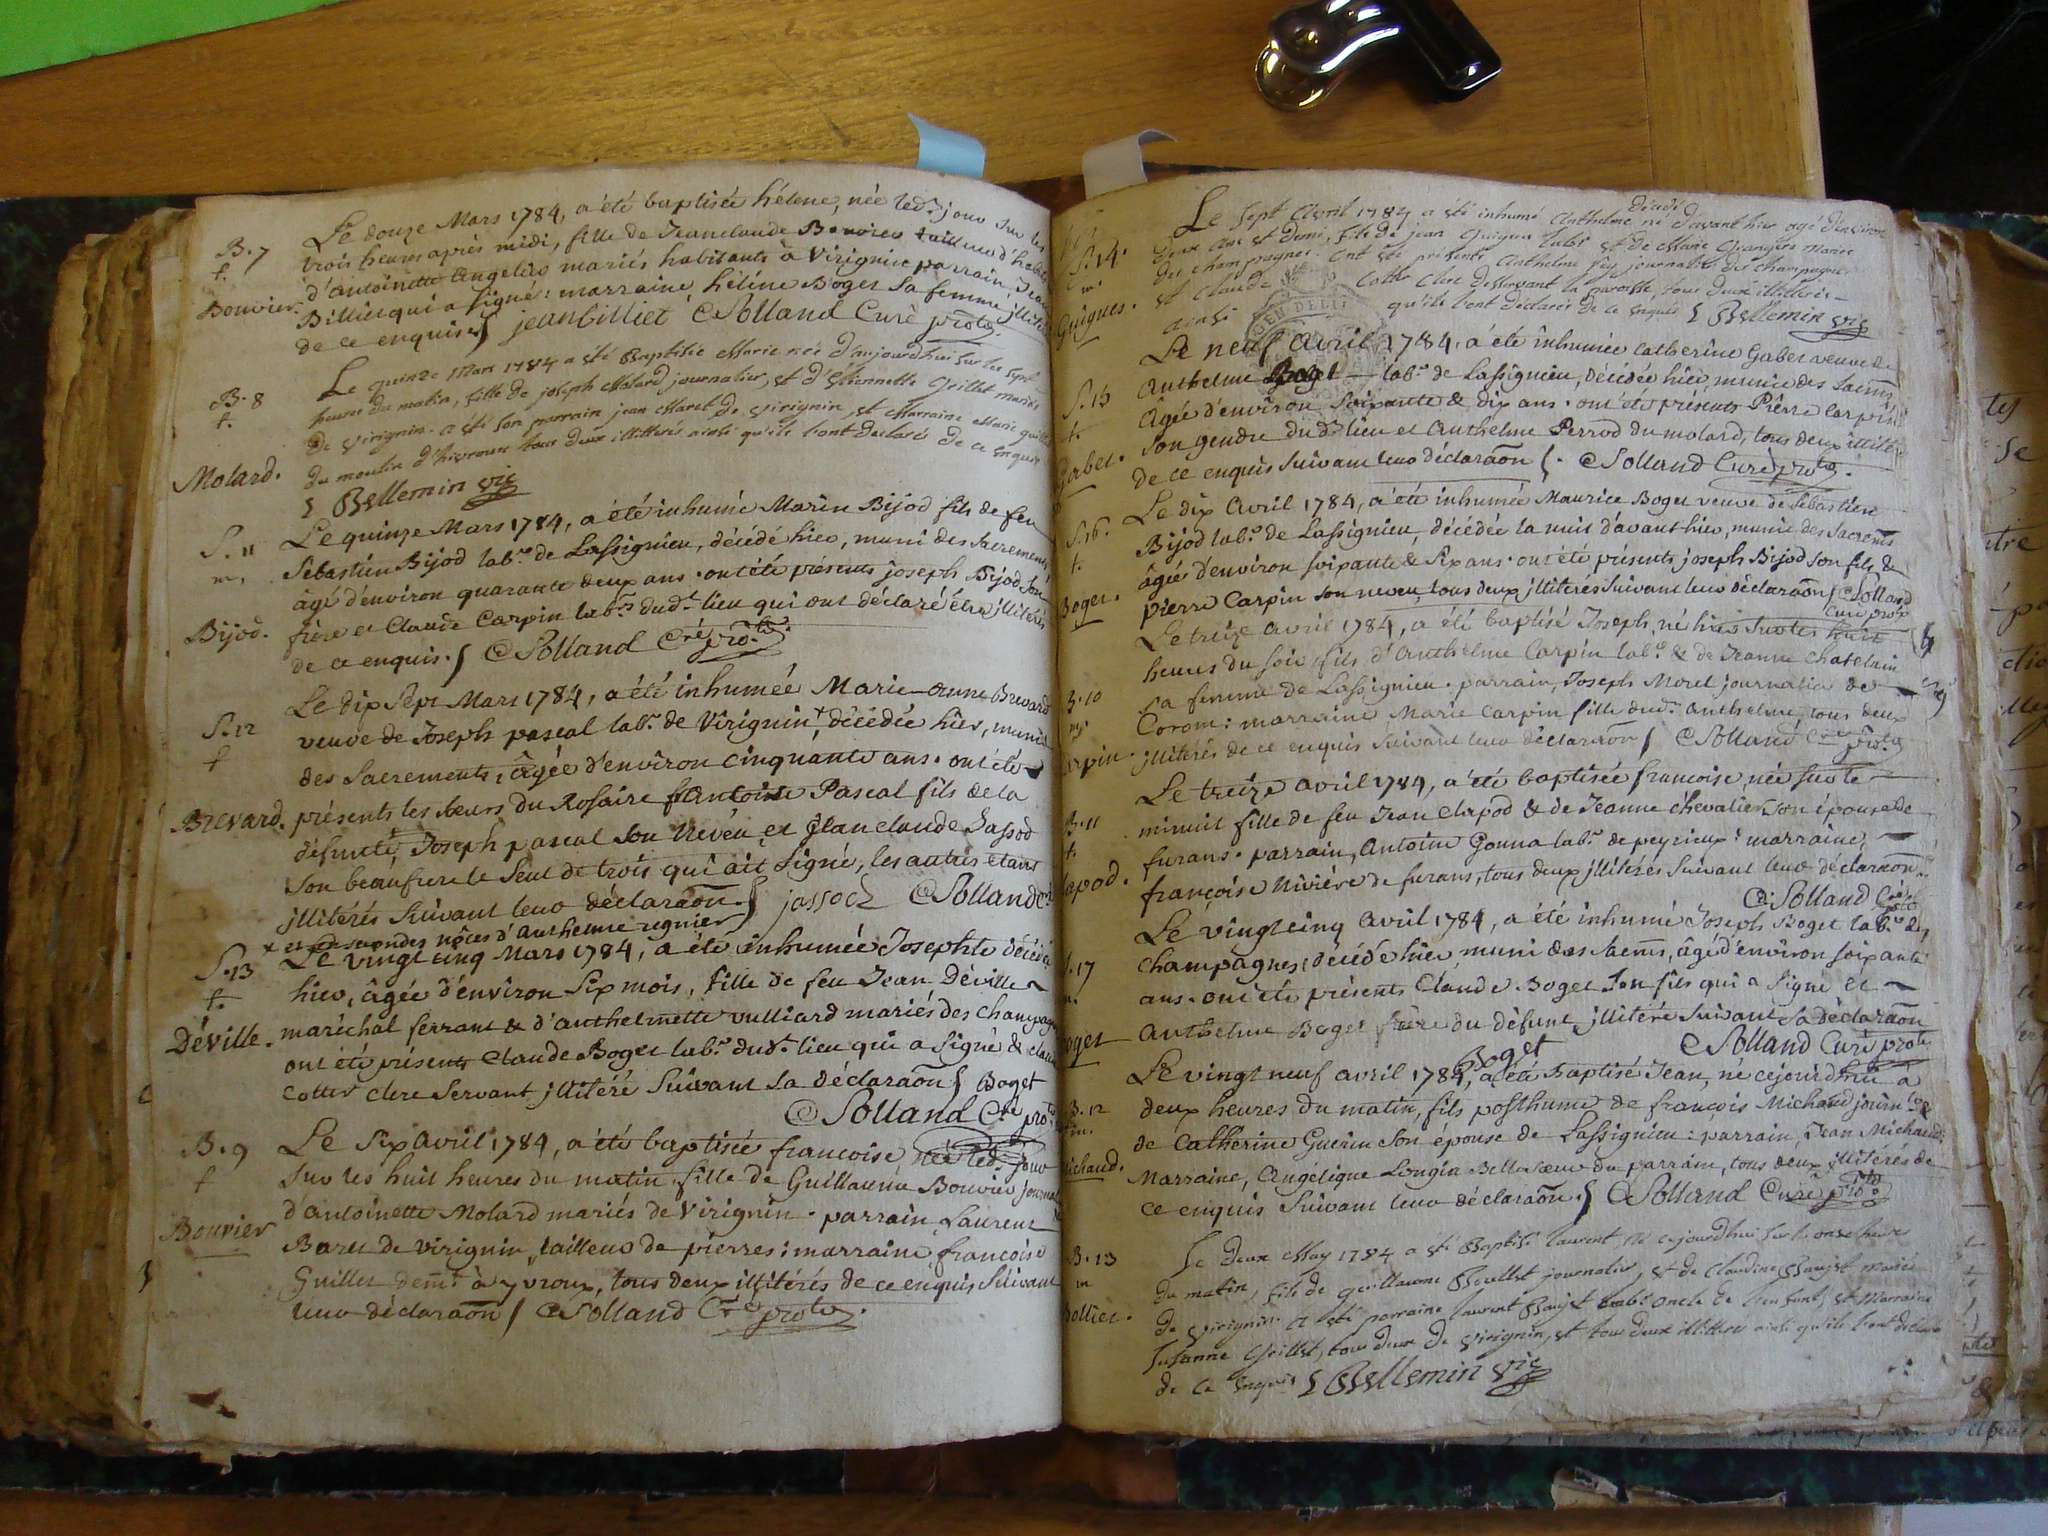 B. 7
f.
Bouvier.
Le douze Mars 1784, a été baptisée hélene, née led.t jour sur les
trois heures après midi, fille de Jeanclaude Bouvier tailleur d'habits
d'antoinette angelier mariés habitants à Virignin parrain, Jean
Billiet qui a signé: marraine héléne Boget sa femme, illit
de ce enquise jeanbilliet CSolland Curé proto.
B. 8
f.
Molard.
Le quinze Mars 1784 a été Baptisée Marie née d'aujourdhui sur les sept
heures du matin, fille de joseph Molard journalier, et d'Etiennette Grillet mariés
de virignin. a été son parrain jean Maret de virignin, et Marraine Marie
du moulin d'hivroux tous deux illitterés ainsi qu'ils l'ont declaré de ce enquis
Bellemin vic
S. 11
m.
Bijod.
Le quinze Mars 1784, a été inhumé Marin Bijod fils de feu
Sébastien Bijod lab.r de Lassignieu, décédé hier, muni des sacrements
âgé d'environ quarante deux ans. ont été présents joseph Bijod son
frère et Claude Carpin lab.rs dud.t lieu qui ont déclaré être illitérés
de ce enquis. CSolland C.ré proto.
S. 12
f
Brevard.
Le dix sept Mars 1784, a été inhumée Marie-anne Brevard
veuve de Joseph pascal lab.r de Virignin +, décédée hier, munie
des Sacrements, âgée d'environ cinquante ans. ont été
présents les sieurs du Rosaire fr antoine Pascal fils de la
défunte, Joseph pascal son neveu et Jeanclaude Jassod
son beaufrere le seul de trois qui ait signé, les autres étant
illitérés suivant leur déclaraõn. jassod CSolland C
+ et en secondes nôces d'Anthelme regnier
S. 13
f.
Déville.
Le vingt cinq Mars 1784, a été inhumée Josephte décédée
hier, âgée d'environ six mois, fille de feu Jean Déville
maréchal ferrant & d'anthelmette vulliard mariés des champagnes
ont été présents Claude Boget lab.r dud.t lieu qui a signé & claude
Cottier clerc servant illitéré suivant sa déclaraõn Boget
CSolland C.ré proto
B. 9
f
Bouvier
Le six avril 1784, a été baptisée francoise née led.t jour
sur les huit heures du matin fille de Guillaume Bouvier journal
d'antoinette Molard mariés de Virignin. parrain Laurent
Baret de virignin, tailleur de pierres: marraine francoise
Guillet dem.t à yvroux, tous deux illitérés de ce enquis suivant
leur déclaraõn CSolland C.ré proto.
S. 14.
m.
Guigues.
Le Sept Avril 1784 a été inhumé Anthelme décédé d'avant hier agé d'environ
deux ans et demi, fils de jean Guigue lab.r et de Marie mariés
des champagnes. ont été présents Anthelme journalier des champagnes
et Claude Cottier Clerc desservant la paroisse, tous deux illitterés
ainsi qu'ils l'ont déclaré de ce enquis Bellemin vic
S. 15
f.
Gabet.
Le neuf avril 1784, a été inhumée Catherine Gabet veuve de
Anthelme Boget — lab.r de Lassignieu, décédée hier, munie des sacem̃s
âgée d'environ soixante & dix ans. ont été présents Pierre Carpin
son gendre dud.t lieu et Anthelme Perrod du molard, tous deux illité
de ce enquis suivant leur déclaraõn. CSolland Curé proto.
S. 16.
f.
Boget.
Le dix avril 1784, a été inhumée Maurice Boget veuve de Sébastien
Bijod lab.r de Lassignieu, décédée la nuit d'avant hier, munie des sacrem̃s
âgée d'environ soixante & six ans. ont été présents joseph Bijod son fils &
pierre Carpin son neveu, tous deux illitérés suivant leur déclaraõn CSolland
Curé proto
B. 10
m.
arpin.
Le treize avril 1784, a été baptisé Joseph, né hier sur les huit
heures du soir, fils d'Anthelme Carpin lab.r & de Jeanne Chatelain
sa femme de Lassignieu. parrain, Joseph Moret journalier de
Corom: marraine Marie Carpin fille dud.t anthelme, tous deux
illitérés de ce enquis suivant leur déclaraõn CSolland C.ré proto
B. 11
f.
lapod.
Le treize avril 1784, a été baptisée francoise née sur le
minuit fille de feu Jean Clapod & de Jeanne chevalier son épouse de
furans. parrain, Antoine Gonna lab.r de peyrieux: marraine,
françoise Nivière de furans, tous deux illitérés suivant leur déclaraõn
CSolland C.ré proto
S. 17
m.
oget
Le vingt cinq avril 1784, a été inhumé Joseph Boget lab.r des
champagnes, décédé hier, muni des sacem̃s, âgé d'environ soixante
ans. ont été présents Claude Boget son fils qui a signé et
anthelme Boget frère du défunt illitéré suivant sa déclaraõn
Boget CSolland Curé proto
B. 12
m.
ichaud.
Le vingt neuf avril 1784, a été Baptisé Jean, né cejourd'hui à
deux heures du matin, fils posthume de françois Michaud journ.er &
de Catherine Guerin son épouse de Lassignieu: parrain, Jean Michaud;
Marraine, Angelique Longin Bellesœur du parrain, tous deux illitérés de
ce enquis suivant leur déclaraõn. CSolland Curé proto
B. 13
m
ollier.
Le deux May 1784 a été Baptisé laurent, né cejourdhui sur les onze heures
du matin, fils de guillaume journalier, et de Claudine mariés
de virignin. a été parrain laurent lab.r oncle de l'enfant, et Marraine
Susanne Grillet, tous deux de virignin, et tous deux illitterés ainsi qu'ils l'ont declaré
de ce enquis Bellemin vic